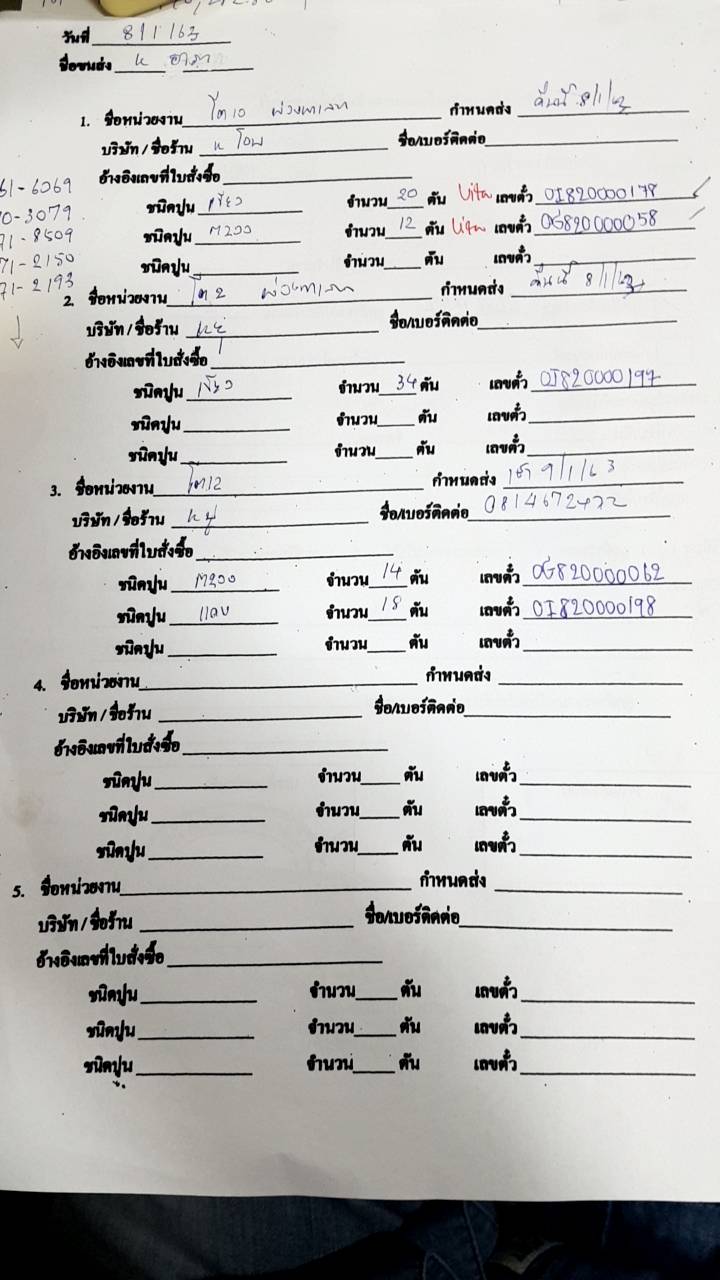 วันที่ 8/1/63
ชื่อขนส่ง K
1. ชื่อหน่วยงาน โต10 พ่วงพาเลท กำหนดส่ง คืนนี้ 8/1/63
บริษัท / ชื่อร้าน K โอม ชื่อ/เบอร์ติดต่อ
อ้างอิงเลขที่ใบสั่งซื้อ
61-6069
ชนิดปูน เขียว จำนวน 20 ตัน เลขตั๋ว 0I820000178
70-3079
ชนิดปูน M200 จำนวน 12 ตัน เลขตั๋ว 0G820000058
71-8509
71-2150
ชนิดปูน จำนวน ตัน เลขตั๋ว
71-2193
2. ชื่อหน่วยงาน โต2 พ่วงพาเลท กำหนดส่ง คืนนี้ 8/1/63
บริษัท / ชื่อร้าน ชื่อ/เบอร์ติดต่อ
อ้างอิงเลขที่ใบสั่งซื้อ
ชนิดปูน เขียว จำนวน 34 ตัน เลขตั๋ว 0I820000197
ชนิดปูน จำนวน ตัน เลขตั๋ว
ชนิดปูน จำนวน ตัน เลขตั๋ว
3. ชื่อหน่วยงาน โต12 กำหนดส่ง 9/1/63
บริษัท / ชื่อร้าน ชื่อ/เบอร์ติดต่อ 0814672422
อ้างอิงเลขที่ใบสั่งซื้อ
ชนิดปูน M200 จำนวน 14 ตัน เลขตั๋ว 0G820000062
ชนิดปูน แดง จำนวน 18 ตัน เลขตั๋ว 0I820000198
ชนิดปูน จำนวน ตัน เลขตั๋ว
4. ชื่อหน่วยงาน กำหนดส่ง
บริษัท / ชื่อร้าน ชื่อ/เบอร์ติดต่อ
อ้างอิงเลขที่ใบสั่งซื้อ
ชนิดปูน จำนวน ตัน เลขตั๋ว
ชนิดปูน จำนวน ตัน เลขตั๋ว
ชนิดปูน จำนวน ตัน เลขตั๋ว
5. ชื่อหน่วยงาน กำหนดส่ง
บริษัท / ชื่อร้าน ชื่อ/เบอร์ติดต่อ
อ้างอิงเลขที่ใบสั่งซื้อ
ชนิดปูน จำนวน ตัน เลขตั๋ว
ชนิดปูน จำนวน ตัน เลขตั๋ว
ชนิดปูน จำนวน ตัน เลขตั๋ว